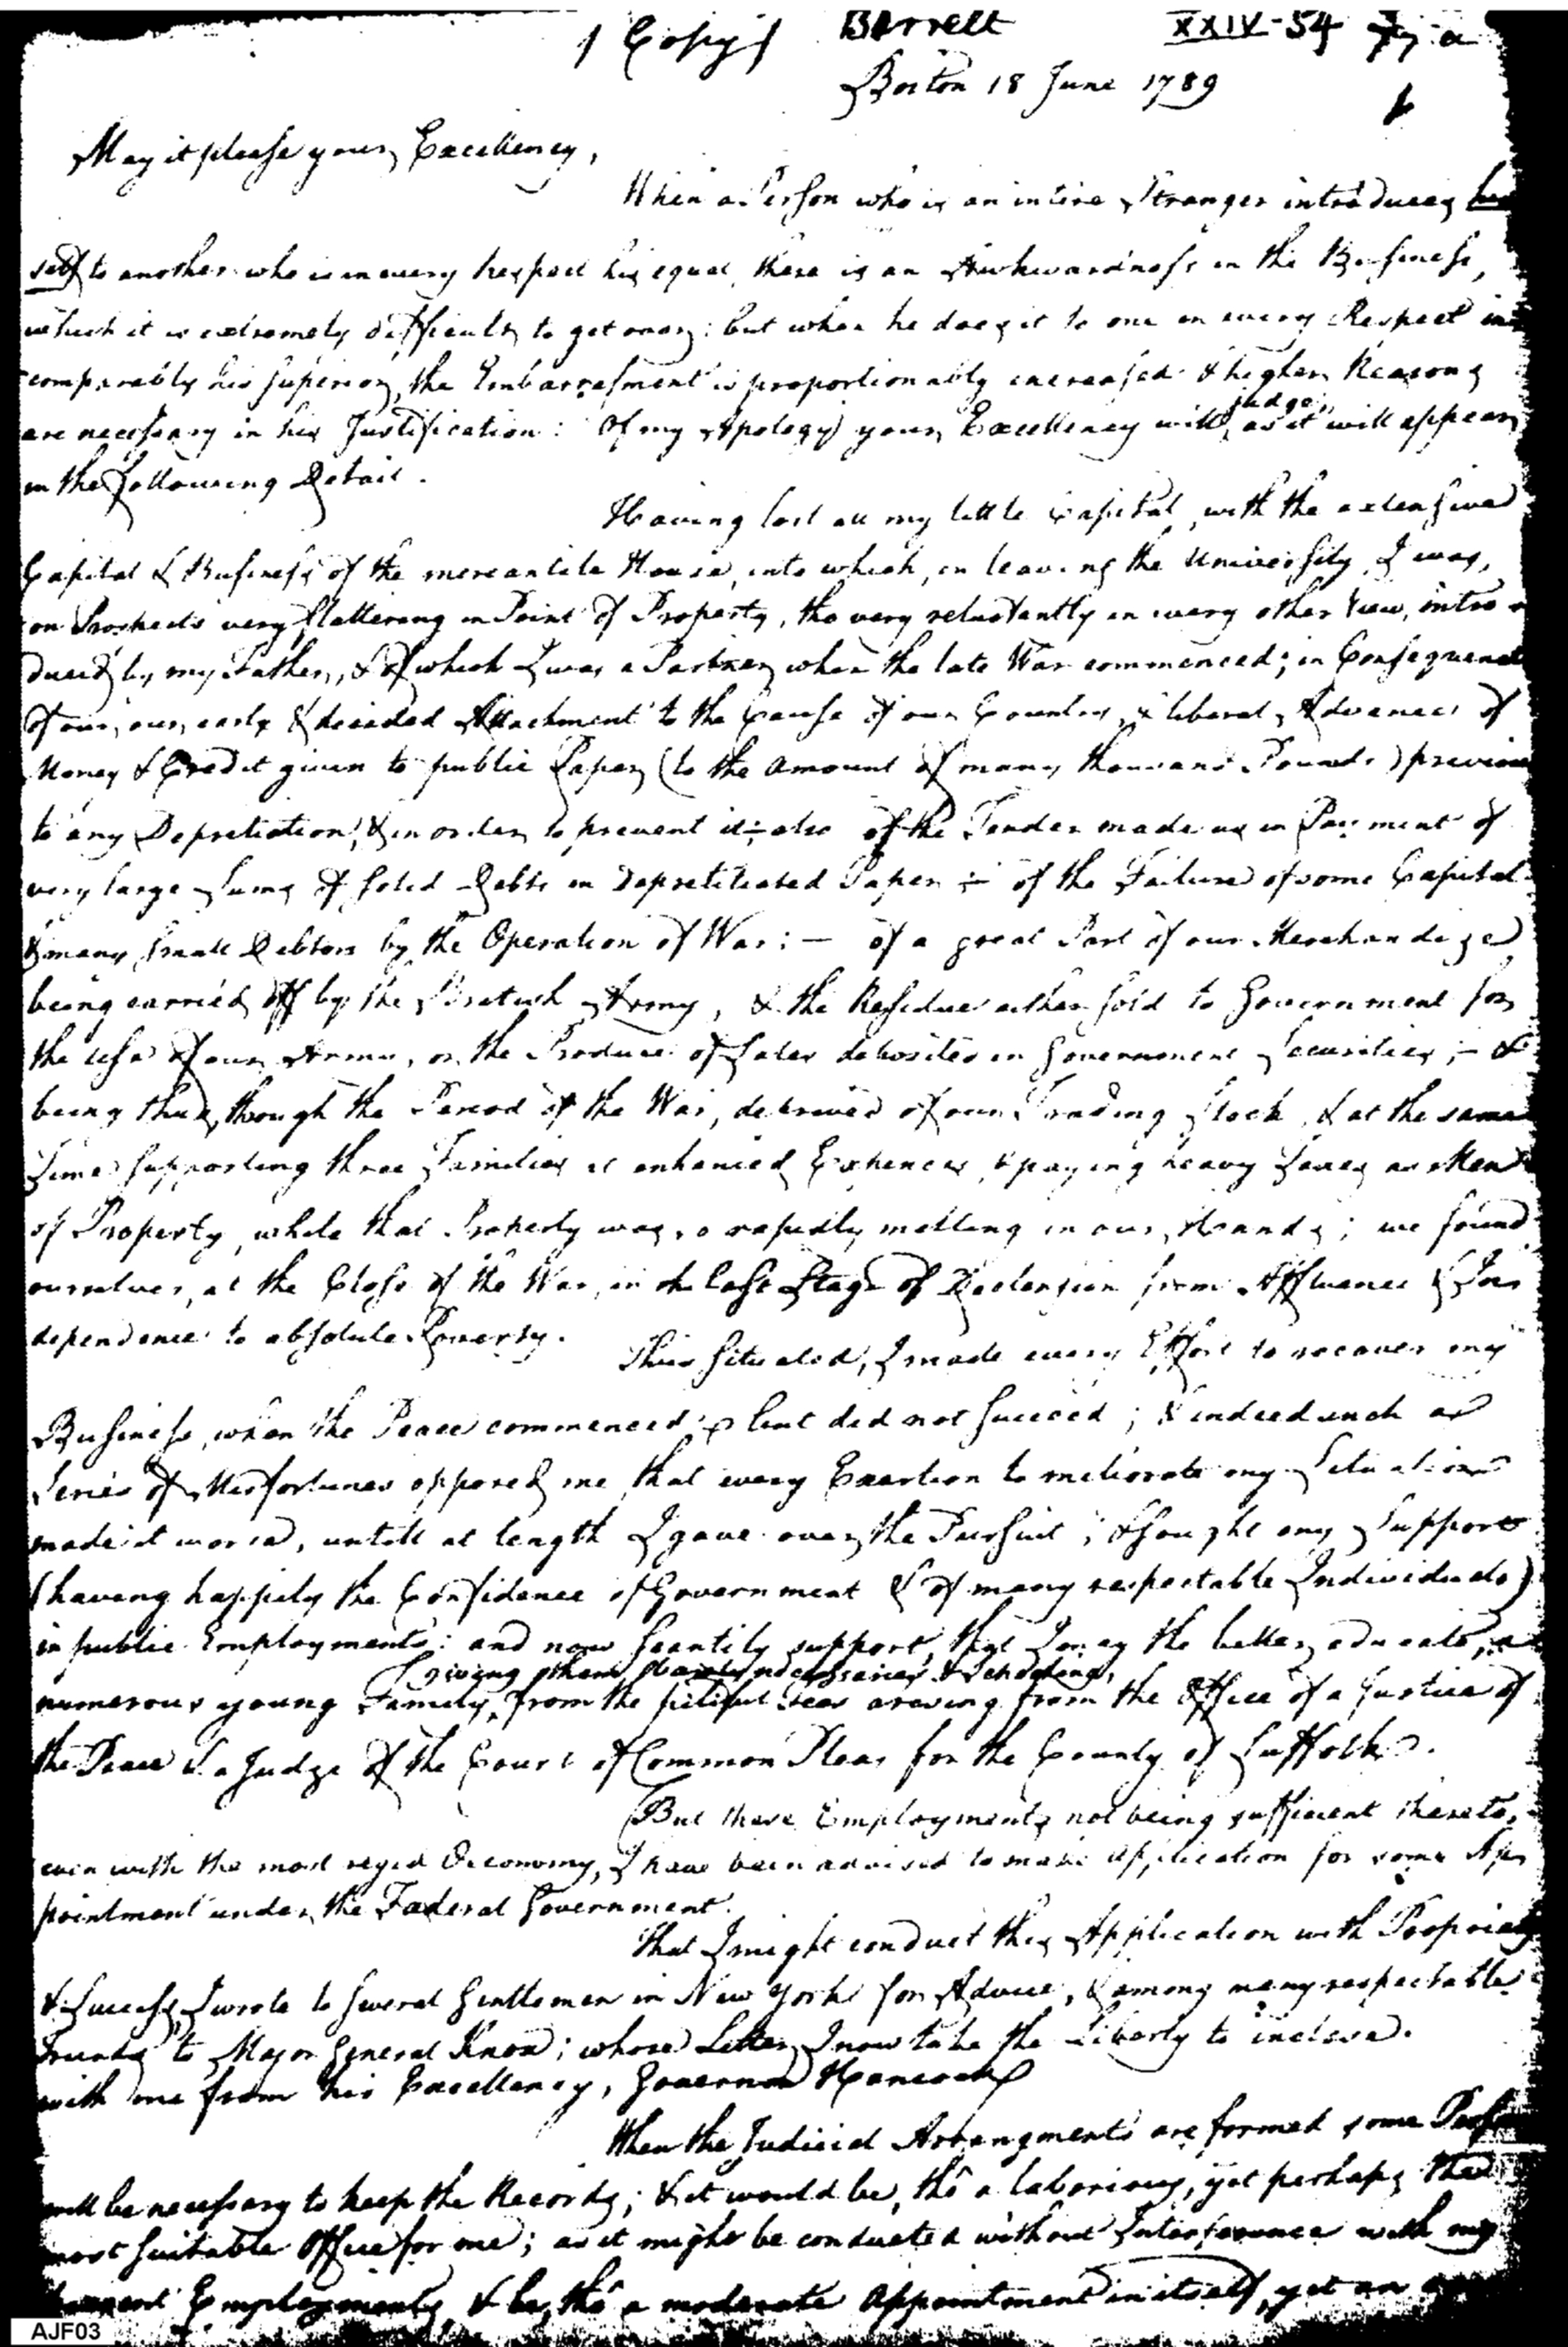 / Copy / Barrell XXIV-54 77 a
Boston 18 June 1789
May it please your Excellency,
When a Person who is an intire Stranger introduces him
self to another who is in every respect his equal, there is an Awkwardness in the Business,
which it is extremely difficult to get over: but when he does it to one in every Respect in
comparably his superior, the Embarrassment is proportionably increased & higher Reasons
are necessary in his Justification: Of my Apology your Excellency will judge, as it will appear
in the following Detail.
Having lost all my little Capital, with the extensive
Capital & Business of the mercantile House, into which, on leaving the University, I was,
on Prospects very flattering in Point of Property, tho very reluctantly in every other View, intro
duced by my Father, & of which I was a Partner when the late War commenced; in Consequence
of our early & decided Attachment to the Cause of our Country, & liberal Advances of
Money & Credit given to public Paper (to the Amount of many thousand Pounds) previous
to any Depretiation, & in order to prevent it; also of the Tender made us in Payment of
very large Sums of solid Debts in Depretitiated Paper ;– of the Failure of some Capital
& many small Debtors by the Operation of War: – of a great Part of our Merchandize
being carried off by the British Army, & the Residue either sold to Government for
the use of our Army, or the Produce of Sales deposited in Government Securities; – &
being thus, through the Period of the War, deprived of our Trading Stock, & at the same
Time supporting three Families at enhanced Expences, & paying heavy Taxes as Men
of Property, while that Property was so rapidly melting in our Hands; we found
ourselves, at the Close of the War, in the last Stage of Declension from Affluence & In
dependence to absolute Poverty.
Thus situated, I made every Effort to recover my
Business, when the Peace commenced; but did not succeed; & indeed such a
Series of Misfortunes opposed me, that every Exertion to meliorate my Situation
made it worse, untill at length I gave over the Pursuit; & sought my Support
(having happily the Confidence of Government & of many respectable Individuals)
in public Employments: and now scantily support, tho' I may the better educate, a
giving them barely necessaries & schooling,
numerous young Family, from the pitiful Fees arising from the Office of a Justice of
the Peace & a Judge of the Court of Common Pleas for the County of Suffolk.
But these Employments not being sufficient thereto,
even with the most regid Oeconomy, I have been advised to make application for some Ap
pointment under the Federal Government.
That I might conduct this Application with Propriety
& Success, I wrote to several Gentlemen in New York for Advice, & among many respectable
Friends to Major General Knox; whose Letter I now take the Liberty to inclose.
with one from his Excellency, Governor Hancock
When the Judicial Arrangments are formed some Person
will be necessary to keep the Records; & it would be, tho a laborious, yet perhaps the
most suitable Office for me; as it might be conducted without Interference with my
present Employments, & be, tho a moderate appointment in itself, yet an
AJF03